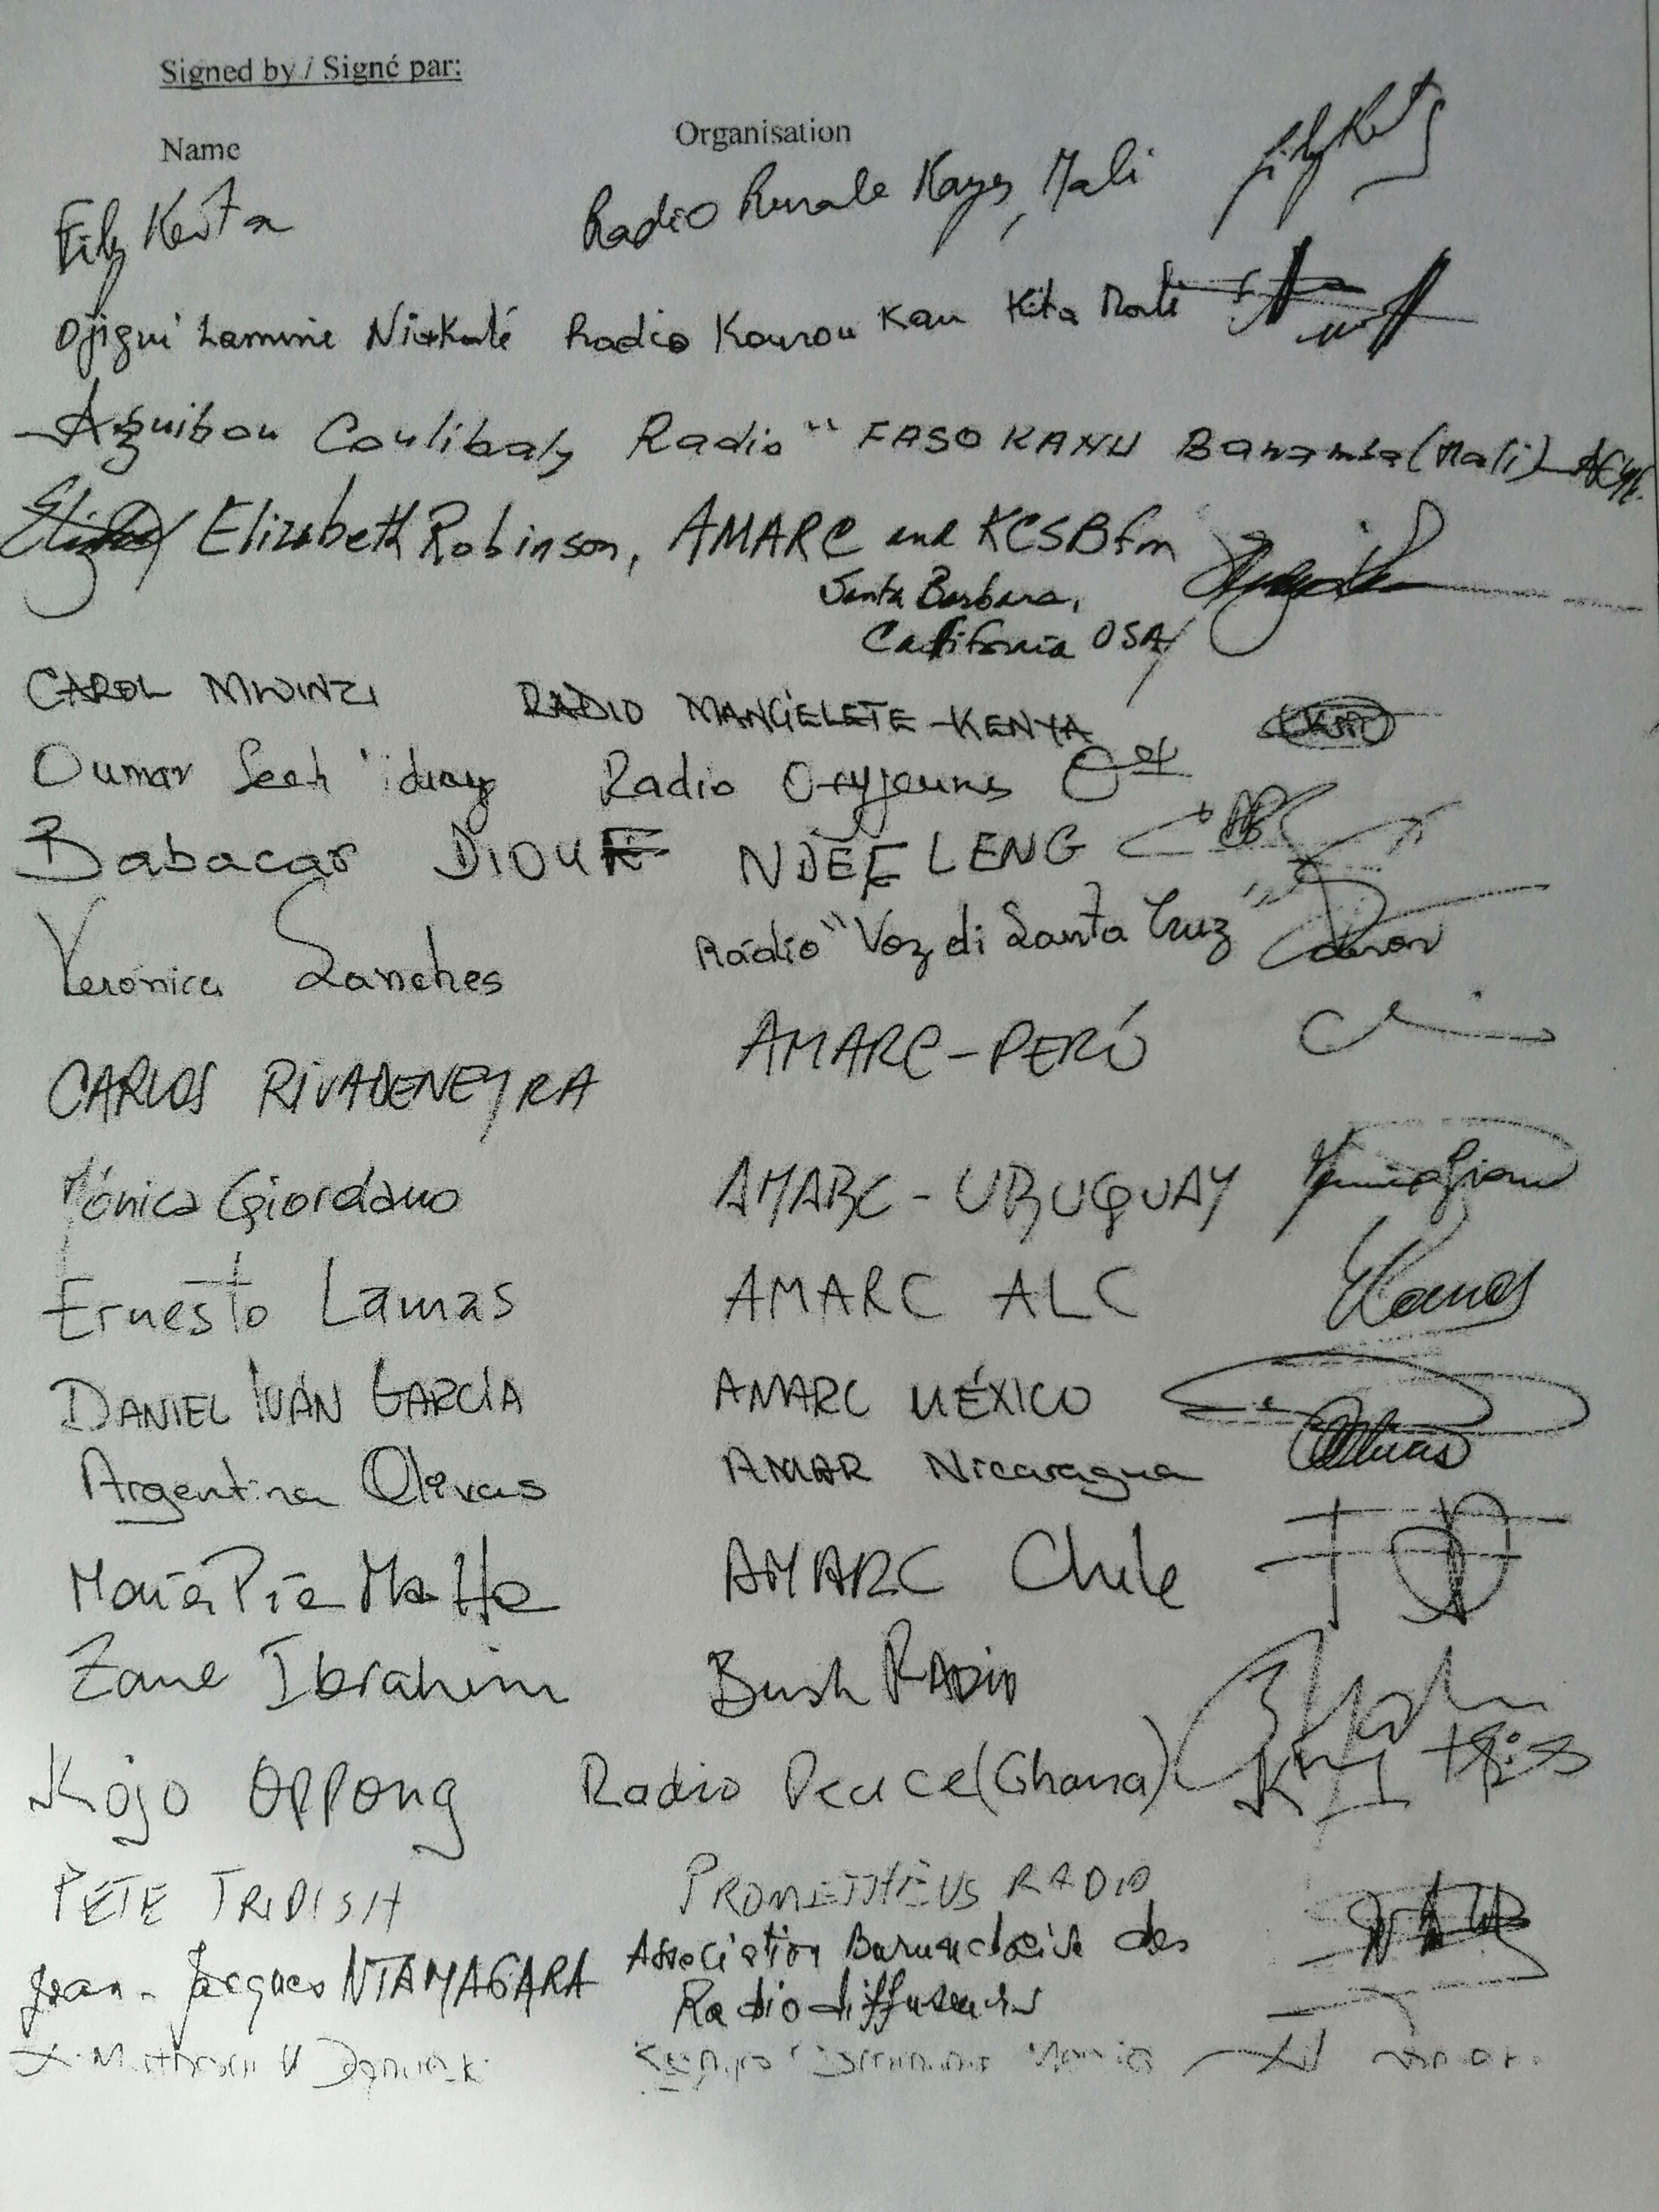 Signed by / Signé par:
Name Organisation
Fily Keita Radio Rurale Kayes, Mali
Djigui Lamine Radio Kourou Kan Kita Mali
Aguibou Coulibaly Radio "FASO KANU Banamba (Mali)
Elizabeth Robinson, AMARC and KCSB fm
Santa Barbara,
California USA
CAROL MWINZI RADIO MANGELETE - KENYA
Oumar Seck Radio
Babacar DIOUF NDEF LENG
Verónica Sanches Rádio "Voz di Santa Cruz"
CARLOS RIVADENEYRA AMARC - PERÚ
Mónica Giordano AMARC - URUGUAY
Ernesto Lamas AMARC ALC
DANIEL IVÁN GARCÍA AMARC MÉXICO
Argentina Olivas AMAR Nicaragua
María Pía Matta AMARC Chile
Zane Ibrahim Bush RADIO
Kojo OPPONG Radio Peace (Ghana)
PETE TRIDISH PROMETHEUS RADIO
Jean-Jacques NTAMAGARA Association Burundaise des
Radiodiffuseurs